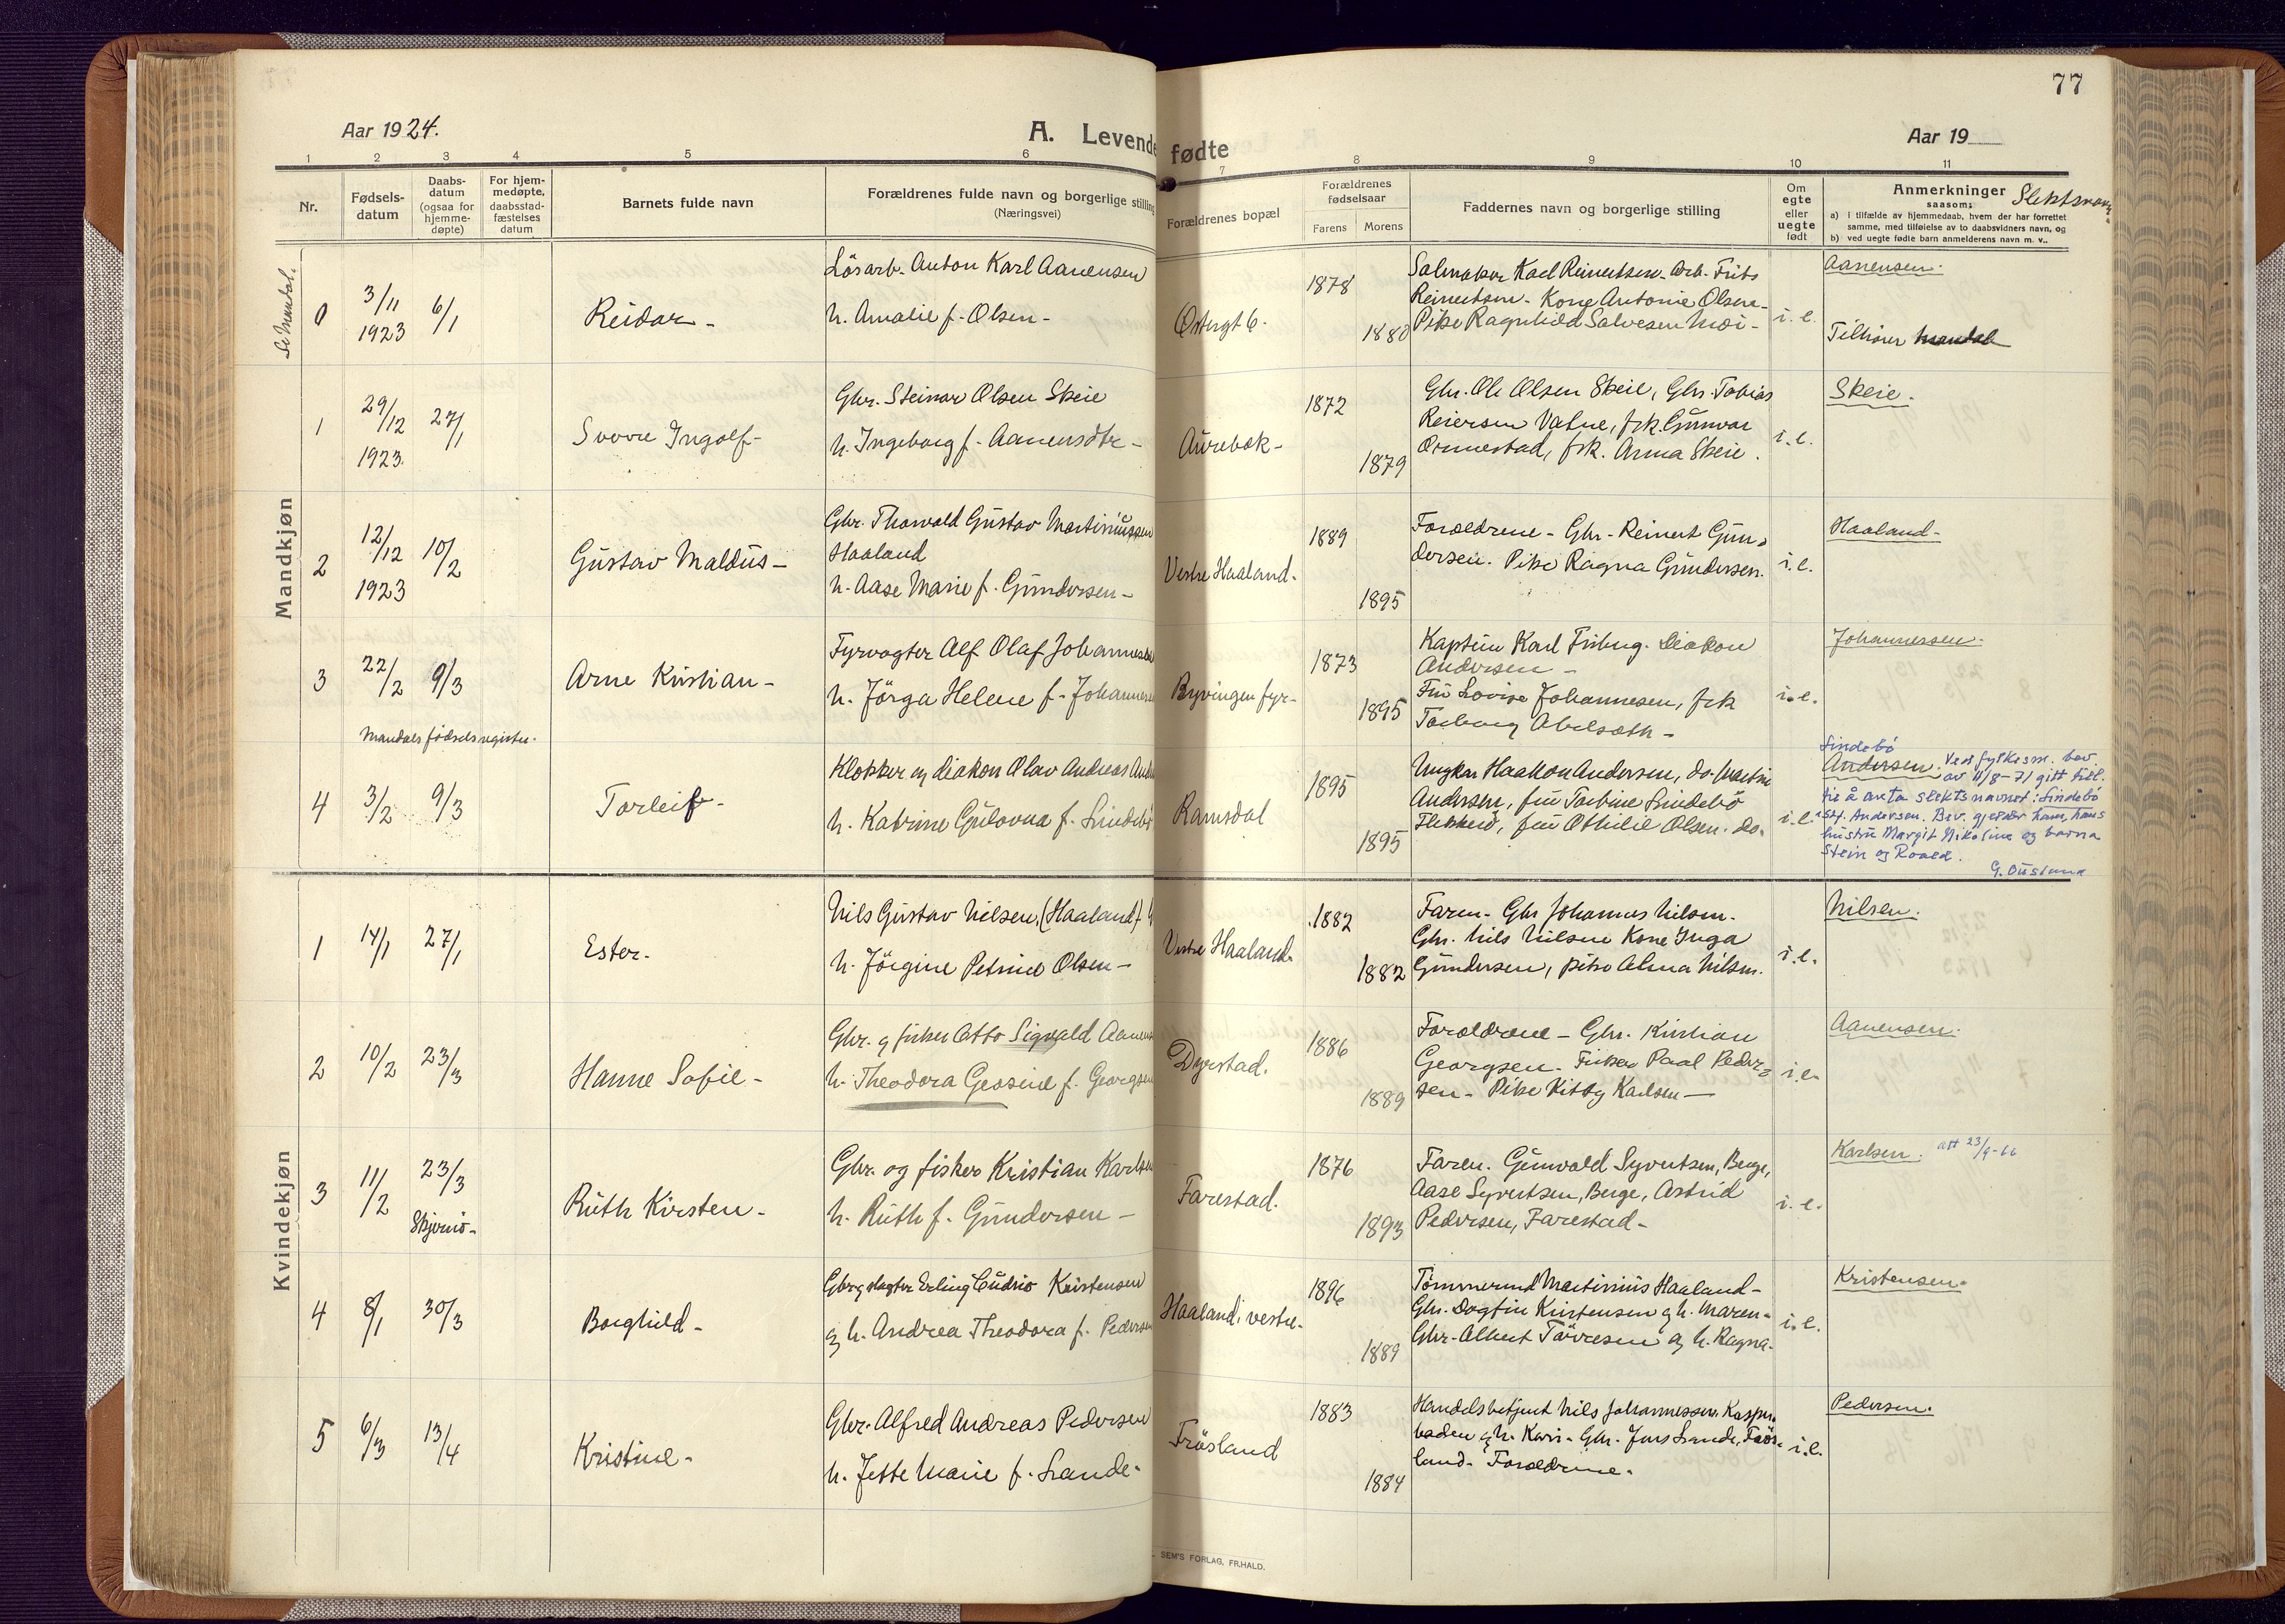 77
Aar 1924.
A. Levende fødte
Aar 19
1 2 3 4 5 6 7 8 9 10 11
Nr.
Fødsels-
datum
Daabs-
datum
(ogsaa for
hjemme-
døpte)
For hjem-
medøpte,
daabsstad-
fæstelses
datum
Barnets fulde navn
Forældrenes fulde navn og borgerlige stilling
(Næringsvei)
Forældrenes bopæl
Forældrenes
fødselsaar
Farens Morens
Faddernes navn og borgerlige stilling
Om
egte
eller
uegte
født
Anmerkninger Slektsnavn
saasom:
a) i tilfælde av hjemmedaab, hvem der har forrettet
samme, med tilføielse av to daabsvidners navn, og
b) ved uegte fødte barn anmelderens navn m. v..
Mandkjøn
Se Mandal.
0
3/11
1923
6/1
Reidar -
Løsarb. Anton Karl Aanensen
h. Amalie f. Olsen -
Østergt 6.
1878
1880
Salmaker Karl Reinertsen - Arb. Frits
Reinertsen - Kone Antonie Olsen -
Pike Ragnhild Salvesen Moi -
i. e.
Aanensen.
Tilhører Mandal
1
29/12
1923.
27/1
Sverre Ingolf -
Gbr. Steinar Olsen Skeie
h. Ingeborg f. Aanensdtr -
Aurebæk -
1872
1879
Gbr. Ole Olsen Skeie, Gbr. Tobias
Reiersen Vatne, frk. Gunvor
Ormestad, frk. Anna Skeie.
i. e.
Skeie.
2
12/12
1923
10/2
Gustav Maldus -
Gbr. Thorvald Gustav Martiniussen
Haaland
h. Aase Marie f. Gundersen -
Vestre Haaland.
1889
1895
Forældrene - Gbr. Reinert Gun-
dersen. Pike Ragna Gundersen.
i. e.
Haaland -
3
22/2
9/3
Arne Kristian -
Fyrvogter Alf Olaf Johannesen
h. Jörga Helene f. Johannesen
Ryvingen fyr -
1873
1895
Kaptein Karl Friberg. Diakon
Andersen -
Fru Lovise Johannesen, frk
Torborg Abelsæth -
i. e.
Johannessen.
Mandals fødselsregister.
4
3/2
9/3
Torleif -
Klokker og diakon Olav Andreas Ande
h. Katrine Gulovna f. Lindebö
Ramsdal
1895
1895
Ungkar Haakon Andersen, do. Martin
Andersen, fru Torbine Lindebö
Flekkerö, fru Othilie Olsen. do.
i. e.
Lindebö
Andersen. Ved fylkesm. bev.
av 11/8-71 gitt till.
til å anta slektsnavnet: Lindebö
istf. Andersen. Bev. gjelder ham, hans
hustru Margit Nikoline og barna
Stein og Roald.
G. Ousland
Kvindekjøn
1
14/1
27/1
Ester.
Nils Gustav Nilsen, (Haaland)
h. Jörgine Petrine Olsen -
Vestre Haaland.
1882
1882
Faren - Gbr Johannes Nilsen.
Gbr. Nils Nilsen Kone Inga
Gundersen, pike Alma Nilsen.
i. e.
Nilsen.
2
10/2
23/3
Hanne Sofie -
Gbr. og fisker Otto Sigvald Aanens
h. Theodora Geosine f. Georgsen
Dyrstad.
1886
1889
Forældrene - Gbr. Kristian
Georgsen. Fisker Paal Peder-
sen - Pike Kitty Karlsen -
i. e.
Aanensen.
3
11/2
23/3
Skjernö -
Ruth Kirsten -
Gbr. og fisker Kristian Karlsen
h. Ruth f. Gundersen -
Farestad.
1876
1893
Faren. Gunvald Syvertsen, Berge,
Aase Syvertsen, Berge, Astrid
Pedersen, Farestad -
i. e.
Karlsen. att 23/9-66
4
8/1
30/3
Borghild -
Gbr og slagter Erling Cudrio Kristensen
og h. Andrea Theodora f. Pedersen
Haaland, vestre.
1896
1889
Tömmermd Martinius Haaland -
Gbr. Dagfin Kristensen og h. Maren -
Gbr. Albert Tövresen og h. Ragna -
i. e.
Kristensen.
5
6/3
13/4
Kristine -
Gbr. Alfred Andreas Pedersen
h. Jette Marie f. Lande -
Frösland
1883
1884
Handelsbetjent Nils Johannessen Kasper-
baden og h. Kari - Gbr. Jens Lande, Frös-
land - Forældrene.
i. e.
Pedersen.
SEM'S FORLAG, FR.HALD.